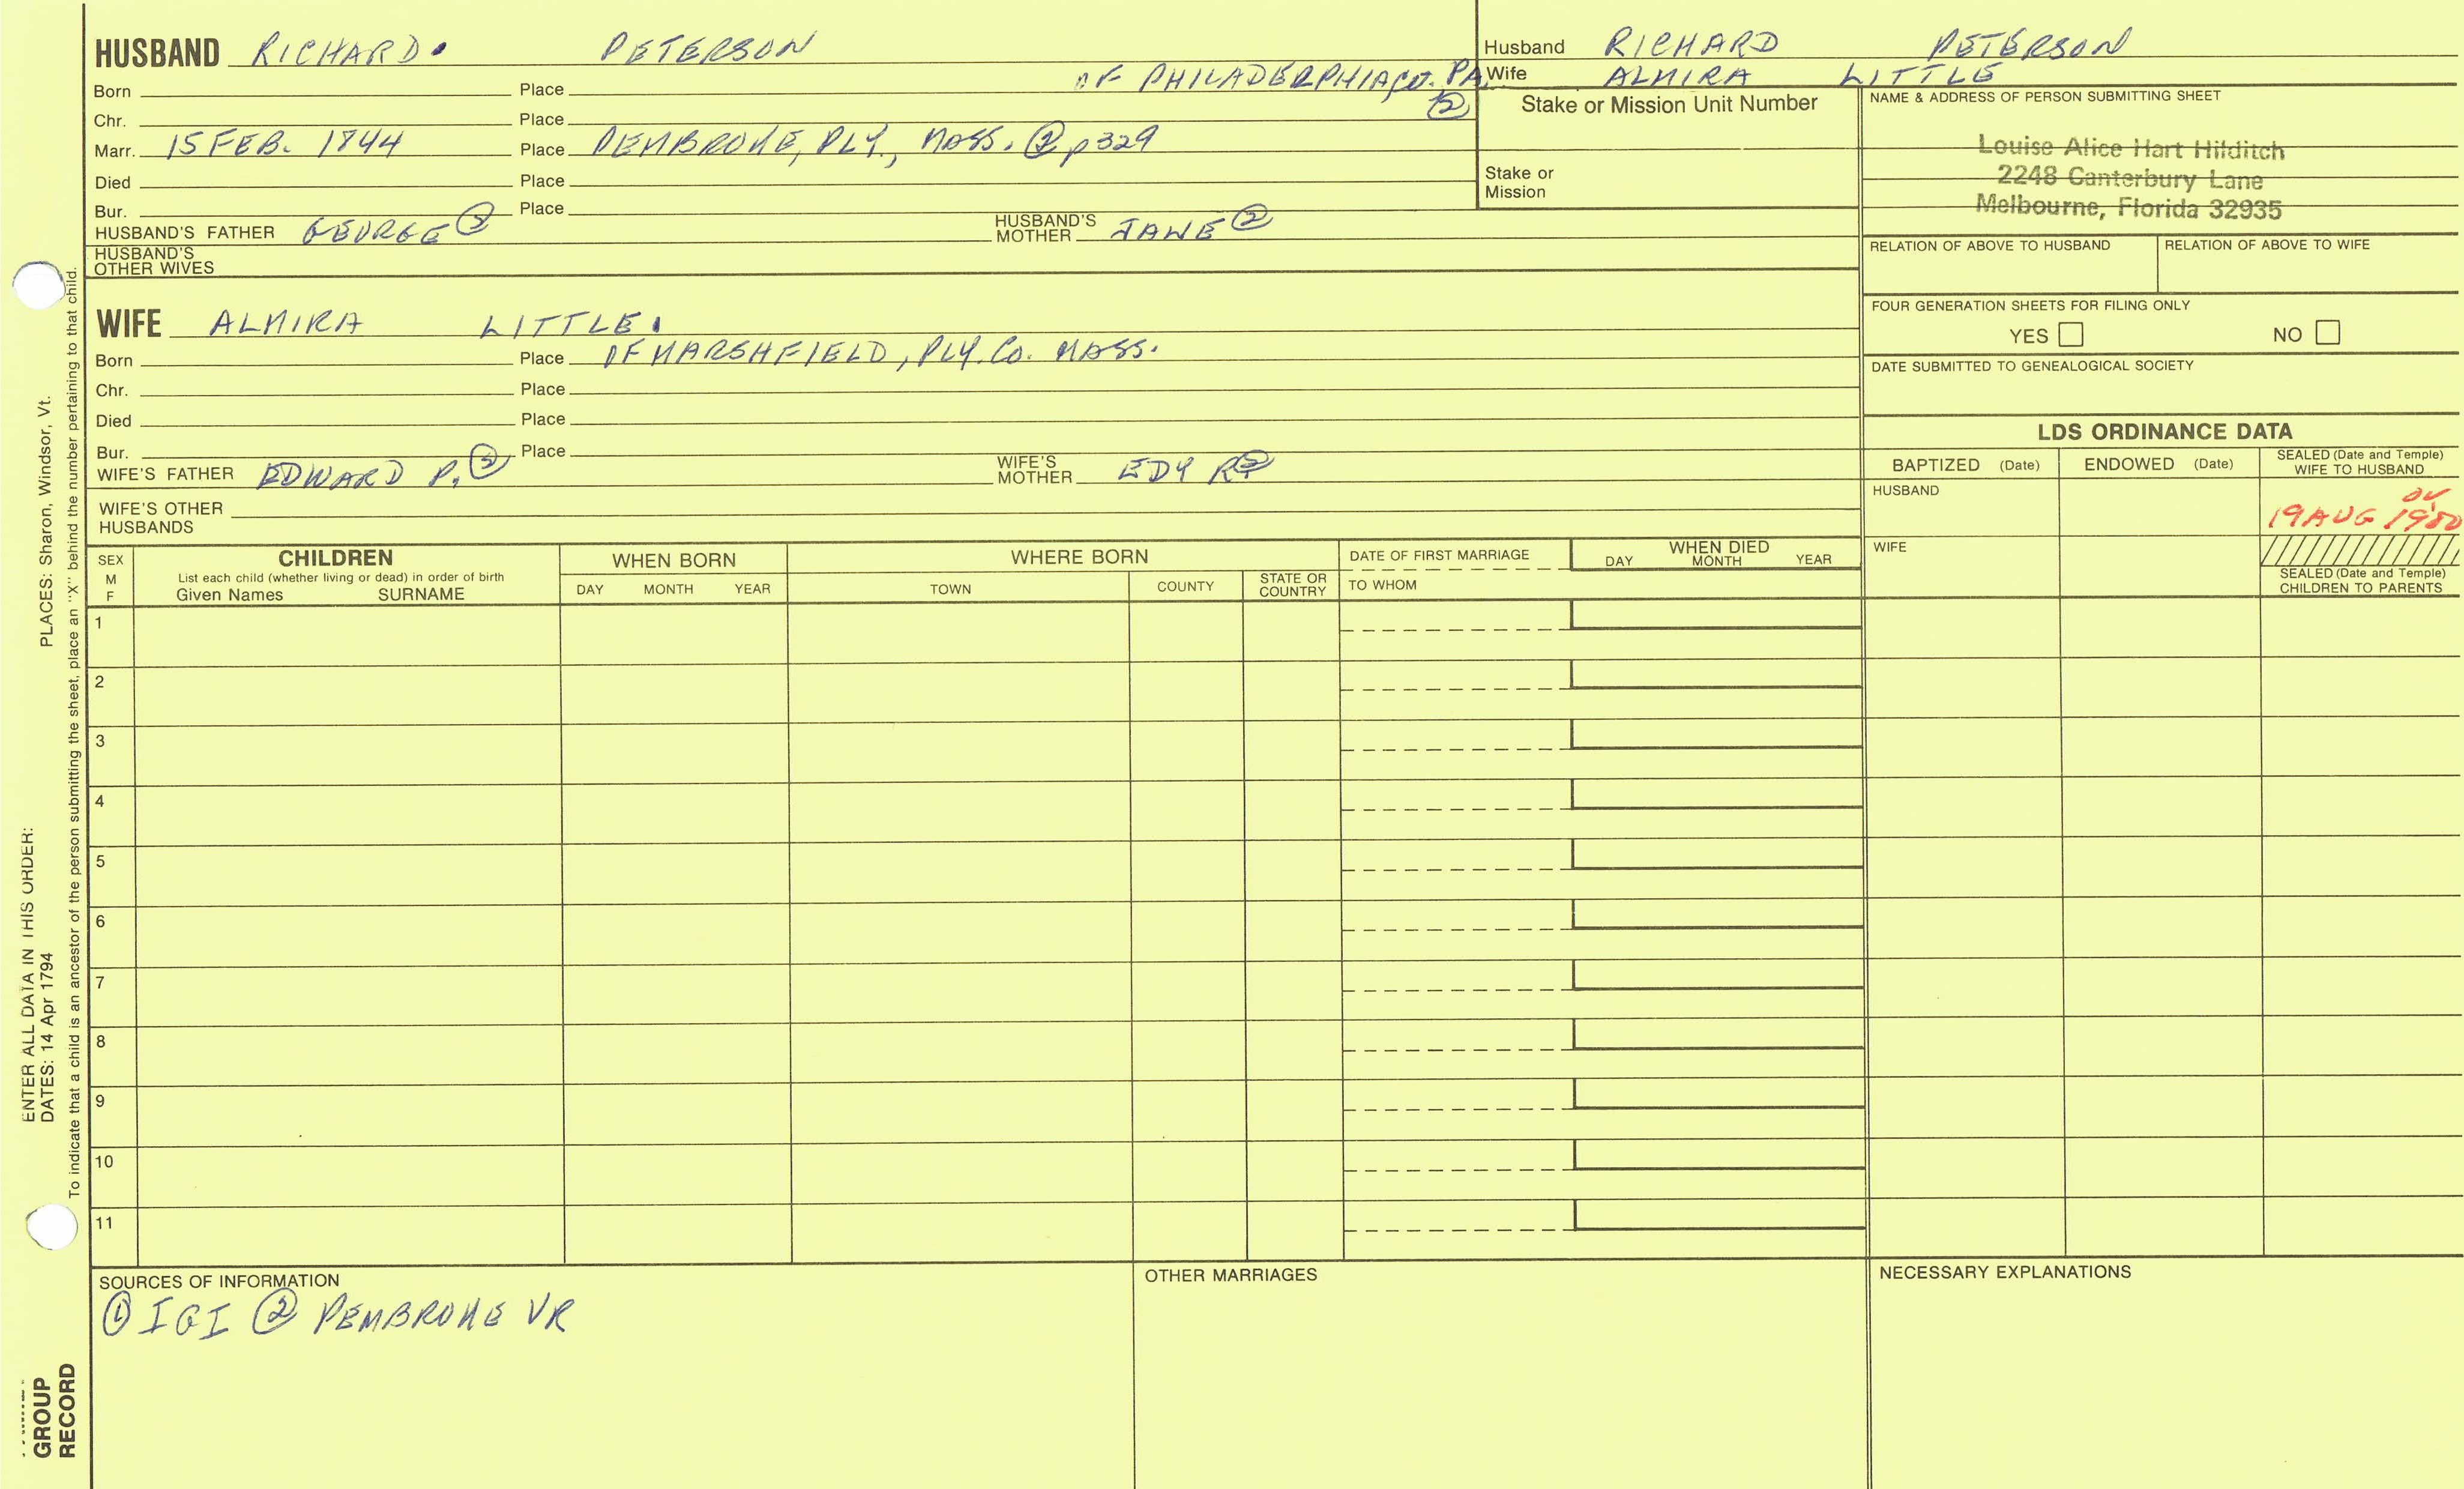 HUSBAND RICHARD. PETERSON
OF PHILADERPHIA, CO. PA. ②
Born Place
Chr. Place
Marr. 15 FEB. 1844 Place PEMBROKE, PLY., MASS. ② p329
Died Place
Bur. Place
HUSBAND'S FATHER GEORGE ② HUSBAND'S MOTHER JANE ②
HUSBAND'S OTHER WIVES
WIFE ALMIRA LITTLE.
Born Place OF MARSHFIELD, PLY. CO. MASS.
Chr. Place
Died Place
Bur. Place
WIFE'S FATHER EDWARD P. ② WIFE'S MOTHER EDY R ②
WIFE'S OTHER HUSBANDS
Husband RICHARD PETERSON
Wife ALMIRA LITTLE
Stake or Mission Unit Number
Stake or Mission
NAME & ADDRESS OF PERSON SUBMITTING SHEET
Louise Alice Hart Hilditch
2248 Canterbury Lane
Melbourne, Florida 32935
RELATION OF ABOVE TO HUSBAND RELATION OF ABOVE TO WIFE
FOUR GENERATION SHEETS FOR FILING ONLY
YES NO
DATE SUBMITTED TO GENEALOGICAL SOCIETY
LDS ORDINANCE DATA
BAPTIZED (Date) ENDOWED (Date) SEALED (Date and Temple) WIFE TO HUSBAND
HUSBAND
19 AUG 1980
WIFE
SEALED (Date and Temple)
CHILDREN TO PARENTS
SEX M F
CHILDREN
List each child (whether living or dead) in order of birth
Given Names SURNAME
WHEN BORN
DAY MONTH YEAR
WHERE BORN
TOWN COUNTY STATE OR COUNTRY
DATE OF FIRST MARRIAGE
TO WHOM
WHEN DIED
DAY MONTH YEAR
1
2
3
4
5
6
7
8
9
10
11
SOURCES OF INFORMATION
① IGI ② PEMBROKE VR
OTHER MARRIAGES
NECESSARY EXPLANATIONS
ENTER ALL DATA IN THIS ORDER:
DATES: 14 Apr 1794 PLACES: Sharon, Windsor, Vt.
To indicate that a child is an ancestor of the person submitting the sheet, place an "X" behind the number pertaining to that child.
GROUP
RECORD